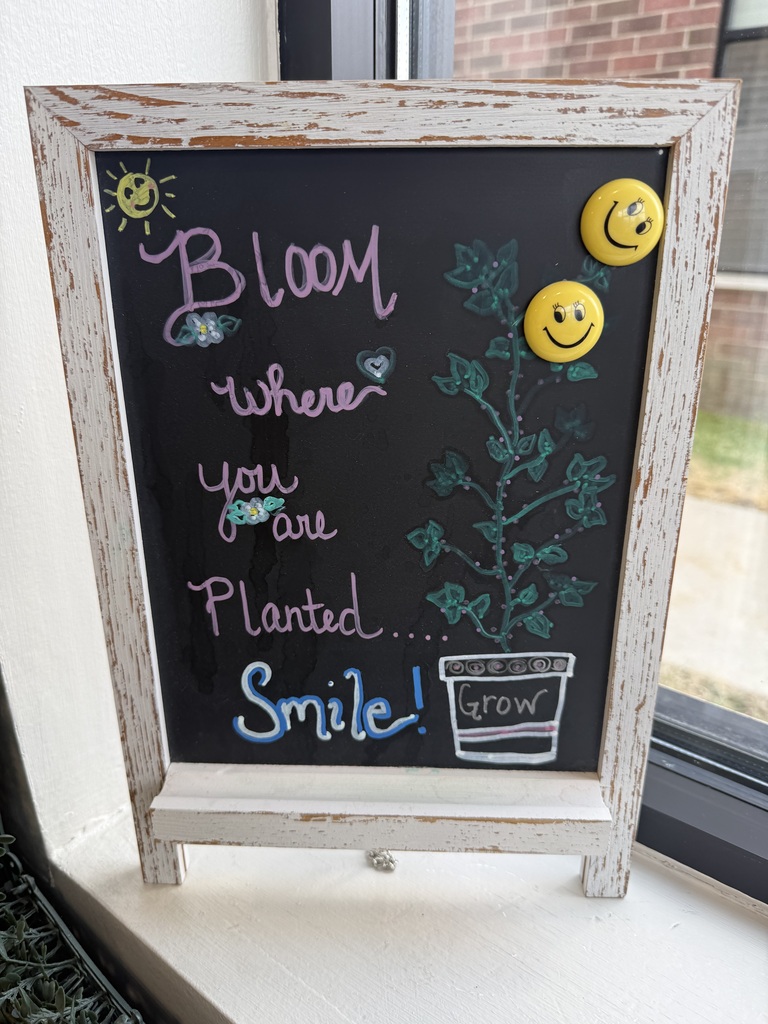 Bloom
where
you
are
Planted....
Smile!
Grow